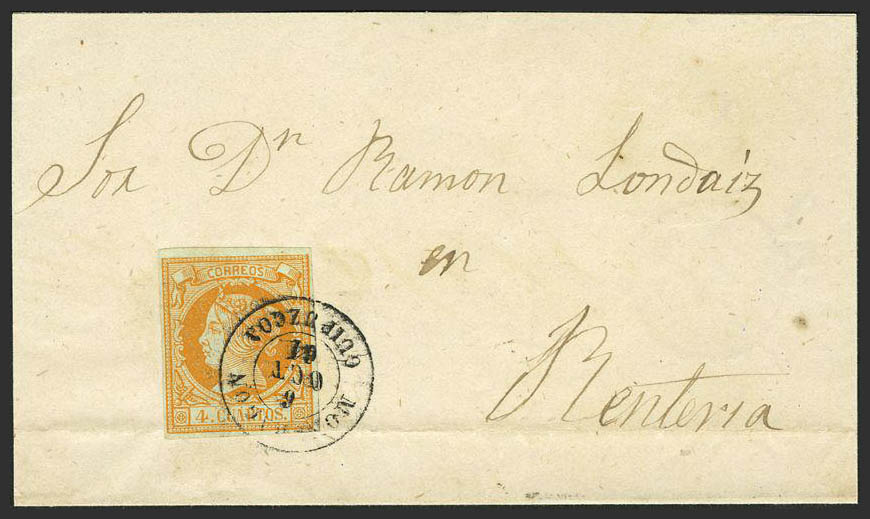 Sor Dn Ramon Londaiz
en
Renteria
CORREOS
4 CUARTOS.
GUIPUZCOA
6
OCT
61